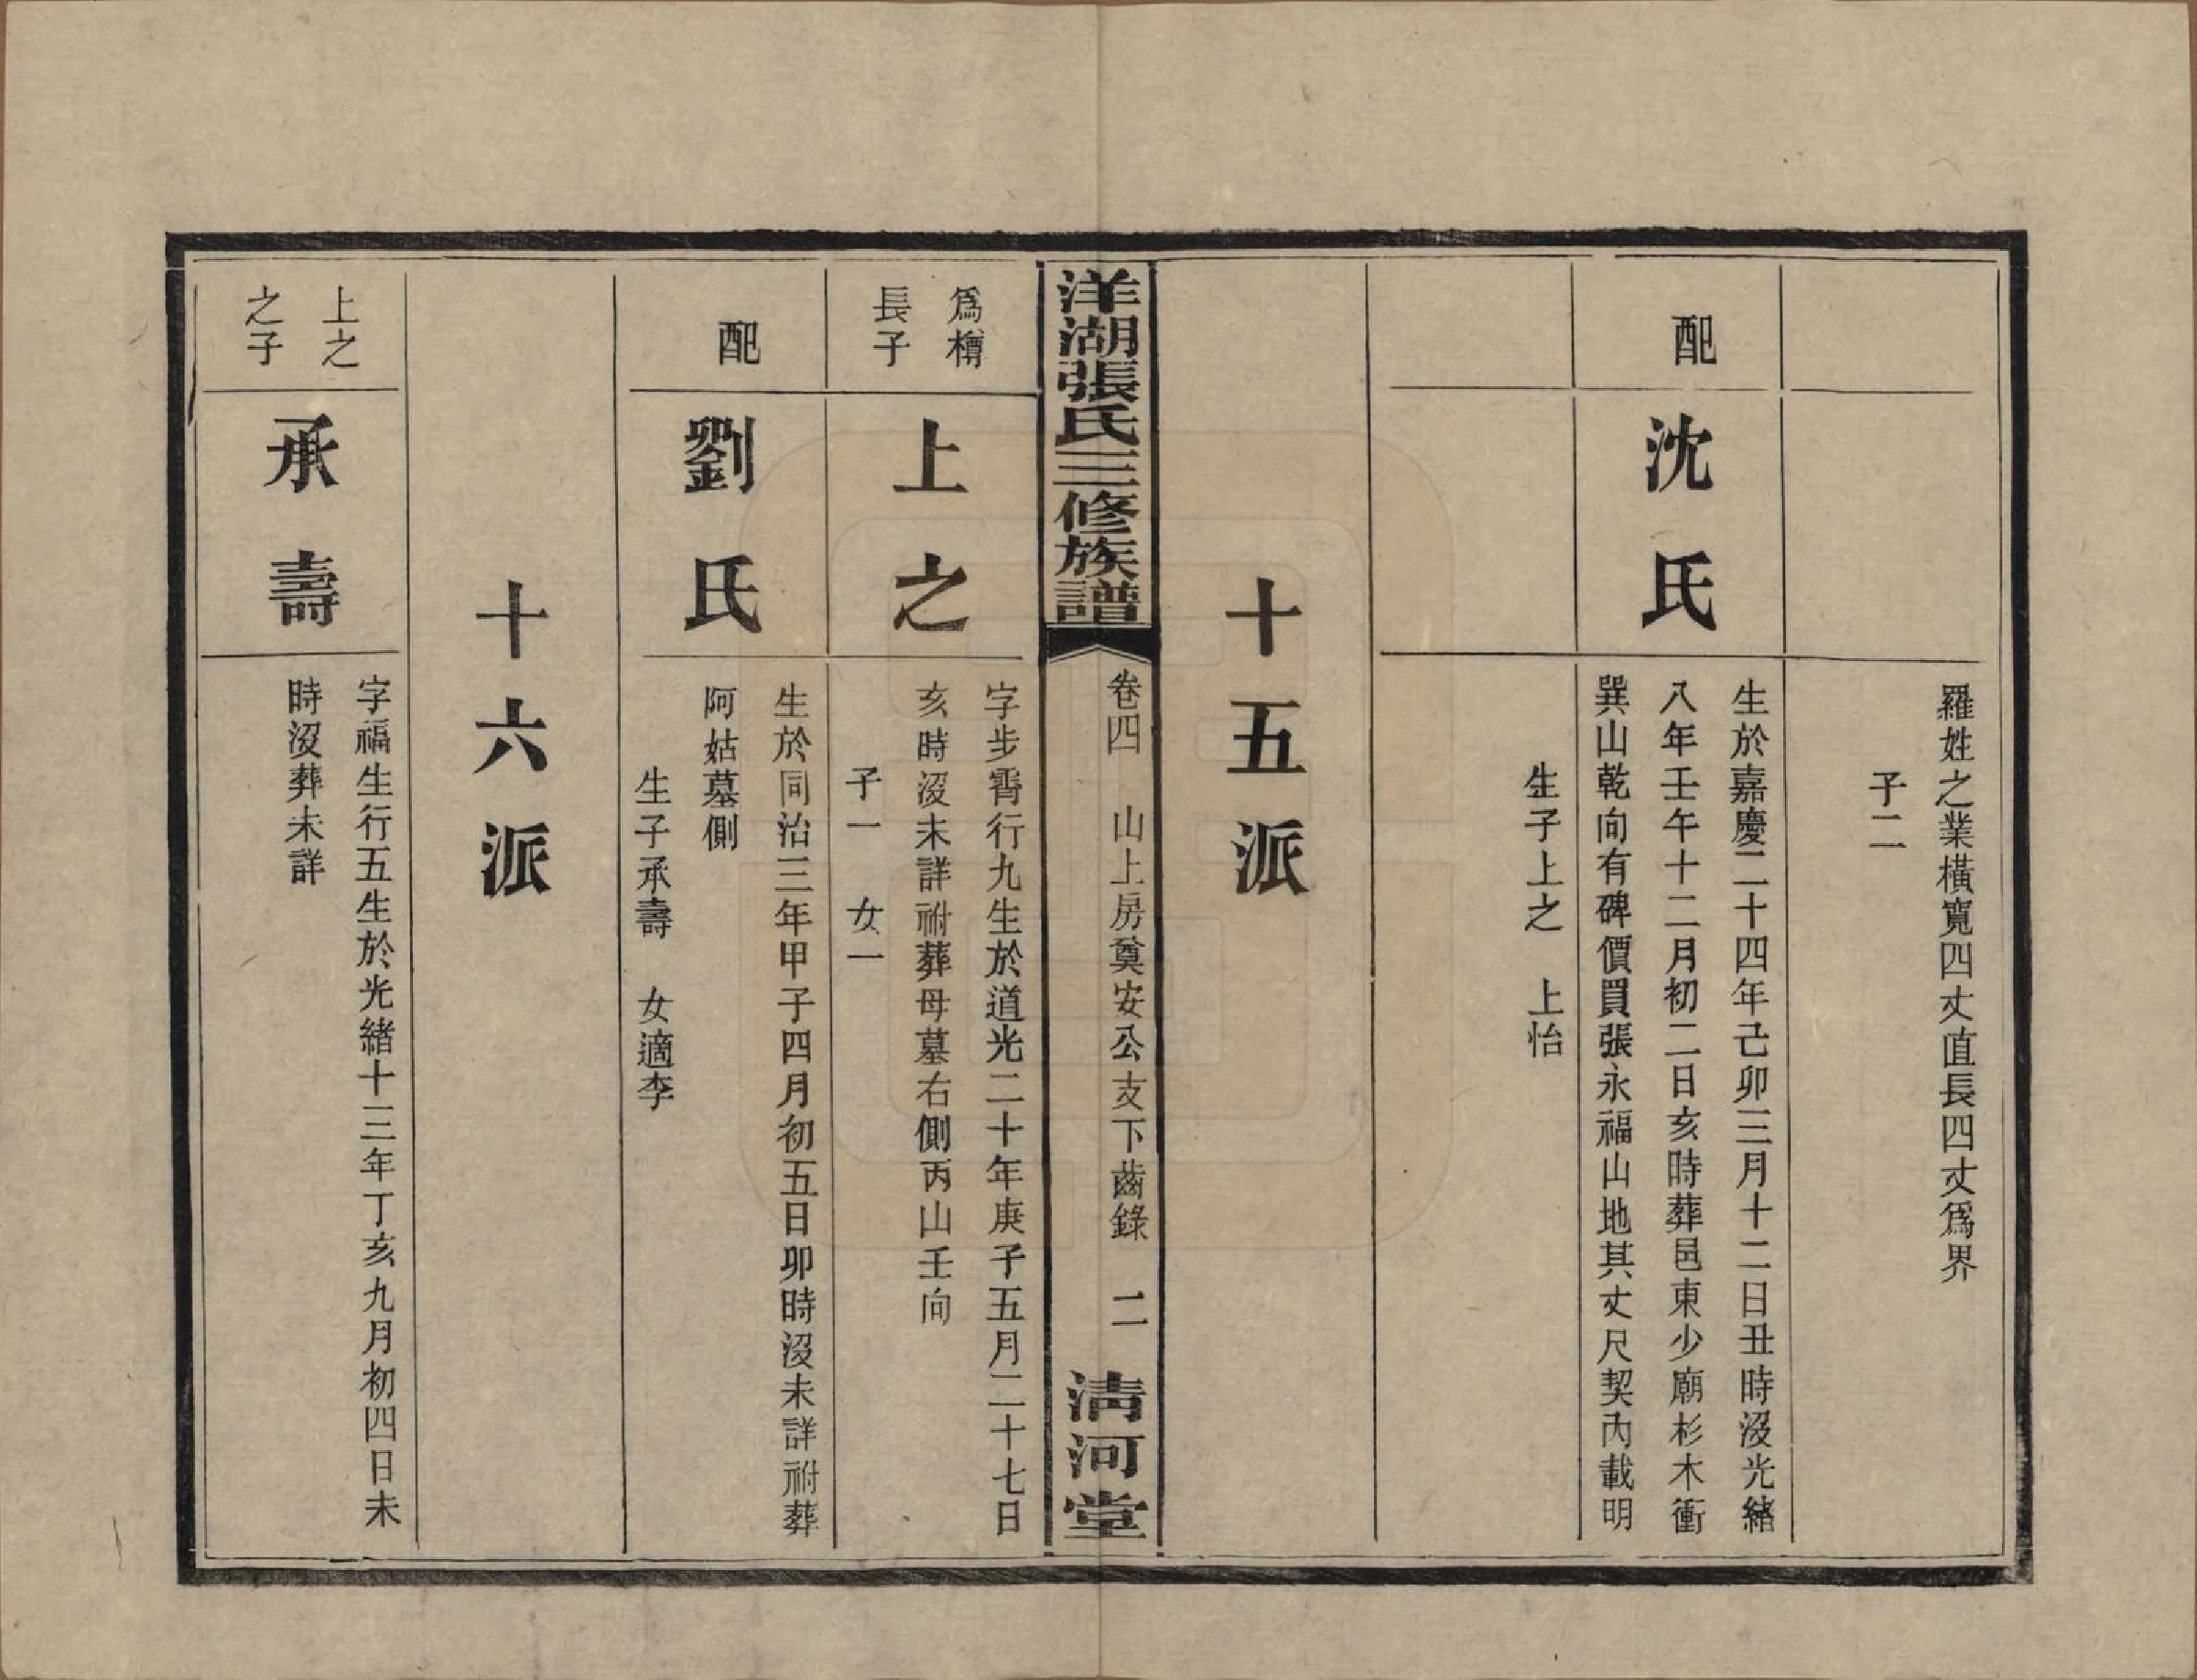 羅姓之業橫寬四丈直長四丈爲界
子二
配
沈氏
生於嘉慶二十四年己卯三月十二日丑時沒光緒
八年壬午十二月初二日亥時葬邑東少廟杉木衝
巽山乾向有碑價買張永福山地其丈尺契內載明
生子上之　上怡
十五派
洋湖張氏三修族譜
卷四　山上房奠安公支下齒錄　二
清河堂
爲櫝
長子
上之
字步霄行九生於道光二十年庚子五月二十七日
亥時沒未詳祔葬母墓右側丙山壬向
子一　女一
配
劉氏
生於同治三年甲子四月初五日卯時沒未詳祔葬
阿姑墓側
生子承壽　女適李
十六派
上之
之子
承壽
字福生行五生於光緒十三年丁亥九月初四日未
時沒葬未詳